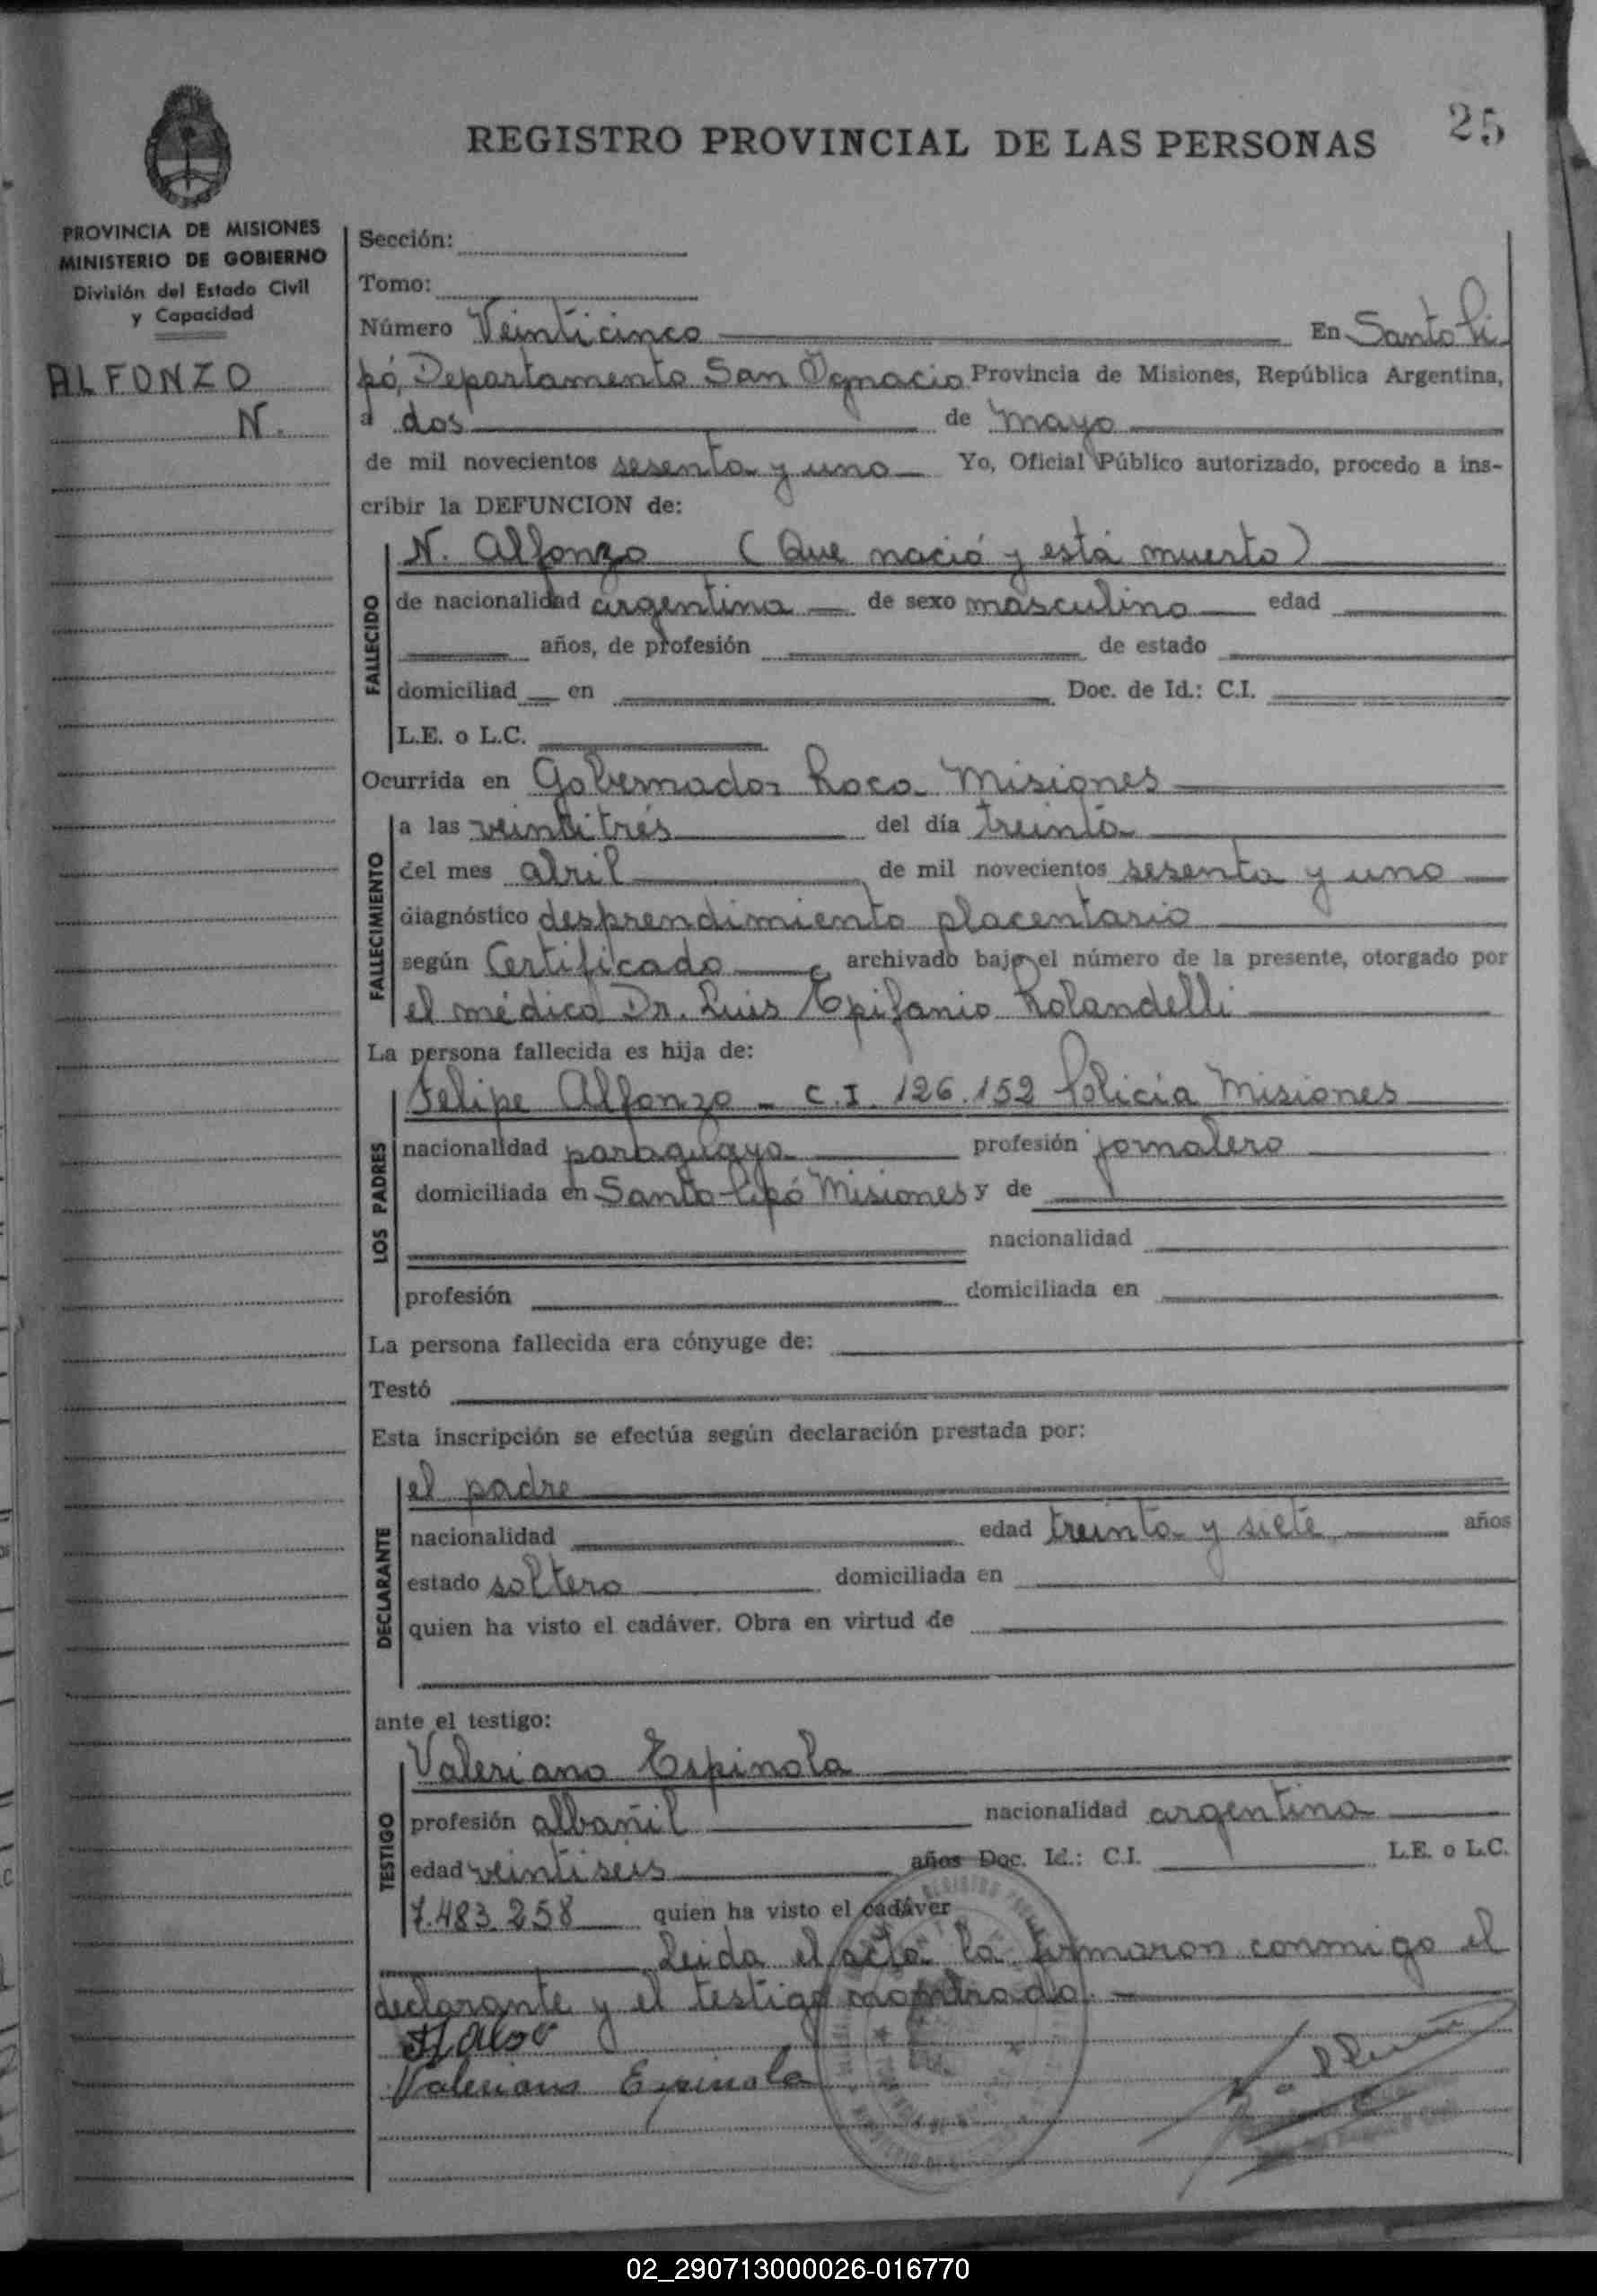 25
REGISTRO PROVINCIAL DE LAS PERSONAS
PROVINCIA DE MISIONES
MINISTERIO DE GOBIERNO
División del Estado Civil
y Capacidad
ALFONZO
N.
Sección:
Tomo:
Número Veinticinco En Santo Pi
pó, Departamento San Ignacio Provincia de Misiones, República Argentina,
a dos de mayo
de mil novecientos sesenta y uno Yo, Oficial Público autorizado, procedo a ins-
cribir la DEFUNCION de:
N. Alfonzo (Que nació y está muerto)
FALLECIDO
de nacionalidad argentina de sexo masculino edad
años, de profesión de estado
domiciliad en Doc. de Id.: C.I.
L.E. o L.C.
Ocurrida en Gobernador Roca Misiones
FALLECIMIENTO
a las veintitrés del día treinta
del mes abril de mil novecientos sesenta y uno
diagnóstico desprendimiento placentario
según Certificado archivado bajo el número de la presente, otorgado por
el médico Dr. Luis Epifanio Rolandelli
La persona fallecida es hija de:
Felipe Alfonzo - C.I. 126.152 Policía Misiones
LOS PADRES
nacionalidad paraguaya profesión jornalero
domiciliada en Santo Pipó Misiones y de
nacionalidad
profesión domiciliada en
La persona fallecida era cónyuge de:
Testó
Esta inscripción se efectúa según declaración prestada por:
el padre
DECLARANTE
nacionalidad edad treinta y siete años
estado soltero domiciliada en
quien ha visto el cadáver. Obra en virtud de
ante el testigo:
Valeriano Espinola
TESTIGO
profesión albañil nacionalidad argentina
edad veintiseis años Doc. Id.: C.I. L.E. o L.C.
7.483.258 quien ha visto el cadáver
Leida el acta la firmaron conmigo el
declarante y el testigo nombrado.
Valeriano Espinola
02_290713000026-016770